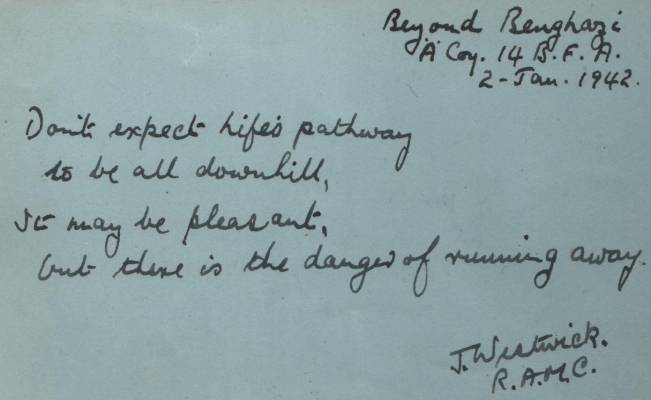 Beyond Benghazi
"A" Coy. 14 B.F.A.
2-Jan. 1942.
Don't expect Life's pathway
to be all downhill,
It may be pleasant,
but there is the danger of running away.
J. Westwick.
R.A.M.C.